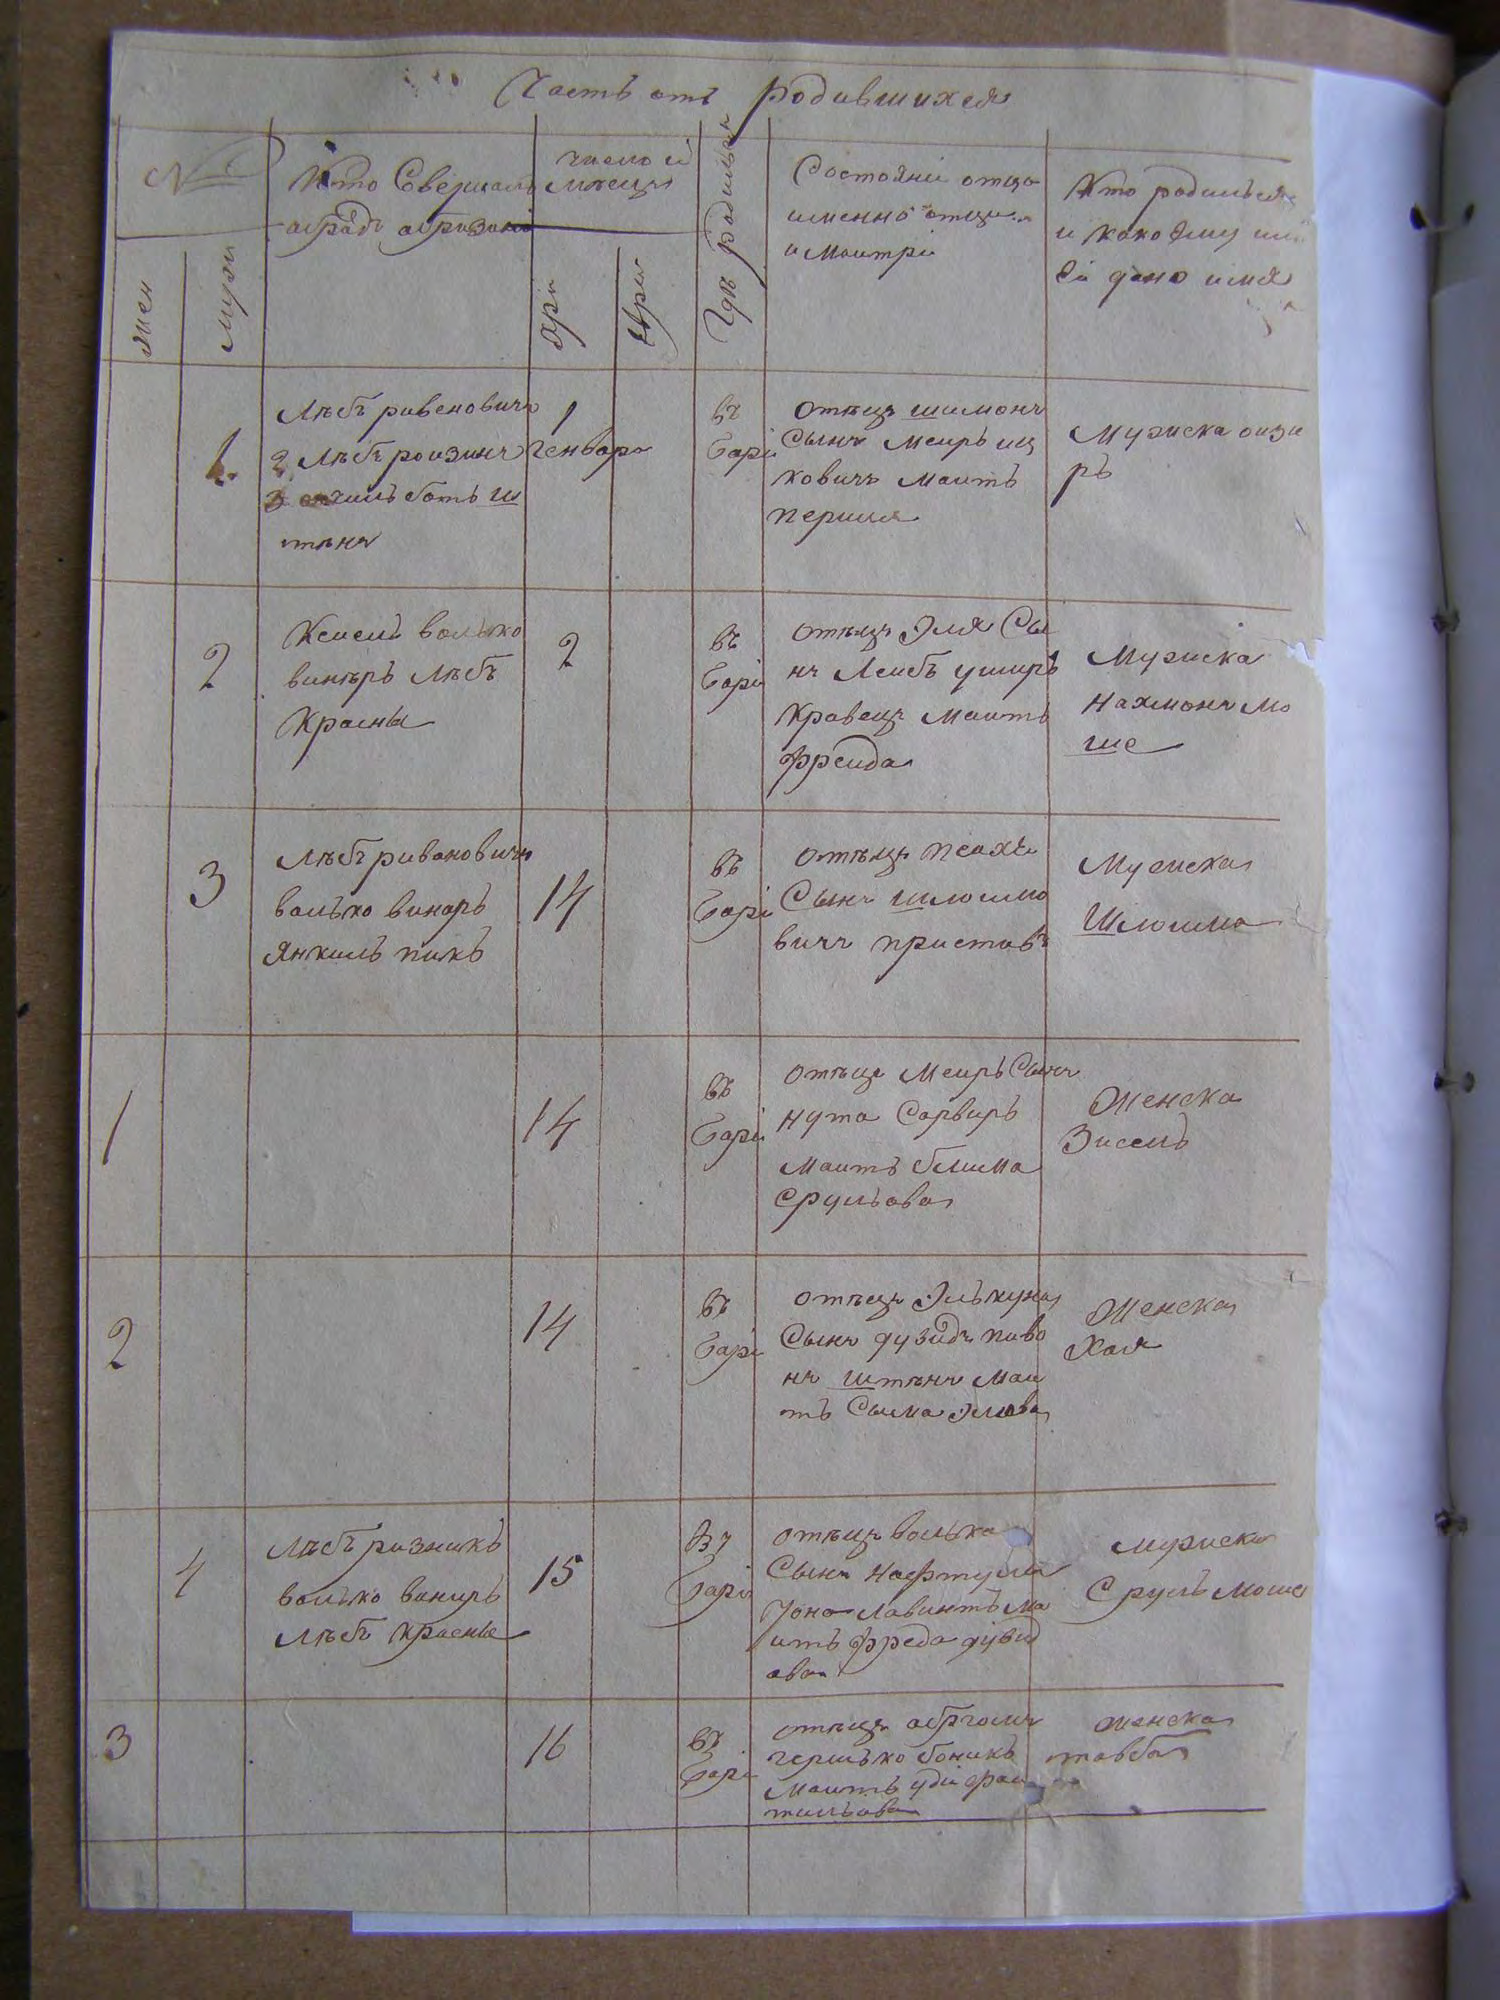 Часть отъ родившихся
№
Кто Совершалъ
обрядъ обрезани
число и
месецъ
Где родился
Состояни отца
именно отца
и маитри
Кто родилься
и како ему или
ей дано имя
жен
муж
хри
евре
1
Лѣбъ рабеновичъ
2 Лѣбъ роизинъ
3 ботъ ш
тѣнъ
1
генвара
въ
Бари
отѣцъ шимонъ
Сынъ меиръ иц
ковичъ маить
першя
Мужска оизи
ръ
2
Кемелъ волько
винѣръ Лѣбъ
Красны
2
въ
Бари
отѣцъ Эля Сы
нъ Леибъ уширъ
Кравецъ маить
фреида
Мужска
нахмонъ мо
ше
3
Лѣбъ рабановичъ
волько винаръ
янкиль пикъ
14
въ
Бари
отѣцъ псахъ
Сынъ шлоимо
вичъ приставъ
Мужска
Шлоима
1
14
въ
Бари
отѣцъ меиръ Сынъ
нута Сарвиръ
маить блима
срульова
Женска
Зисель
2
14
въ
Бари
отѣцъ Элькуна
Сынъ дувидъ пиво
нъ штѣнъ маи
ть Сима Элова
Женска
Хая
4
Лѣбъ разникъ
волько виниръ
Лѣбъ красны
15
въ
Бари
отѣцъ волька
Сынъ нафтула
Иона Лавинтъ ма
ить фреда дувид
ова
мужска
Сруль моше
3
16
въ
Бари
отѣцъ абрамъ
гершько боникъ
маить
женска
тавба